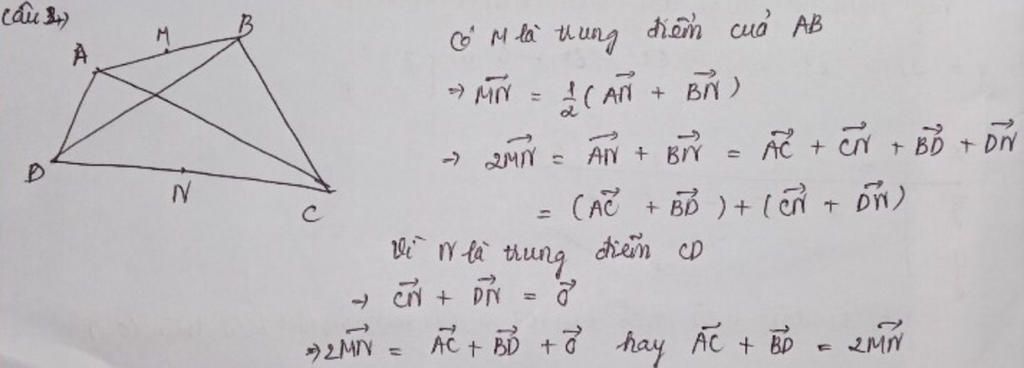 Câu 2,)
A M B
D N C
Có M là trung điểm cuả AB
→ MN⃗ = 1/2 ( AN⃗ + BN⃗ )
→ 2MN⃗ = AN⃗ + BN⃗ = AC⃗ + CN⃗ + BD⃗ + DN⃗
= (AC⃗ + BD⃗ ) + ( CN⃗ + DN⃗ )
Vì N là trung điểm CD
→ CN⃗ + DN⃗ = 0⃗
→ 2MN⃗ = AC⃗ + BD⃗ + 0⃗ hay AC⃗ + BD⃗ = 2MN⃗